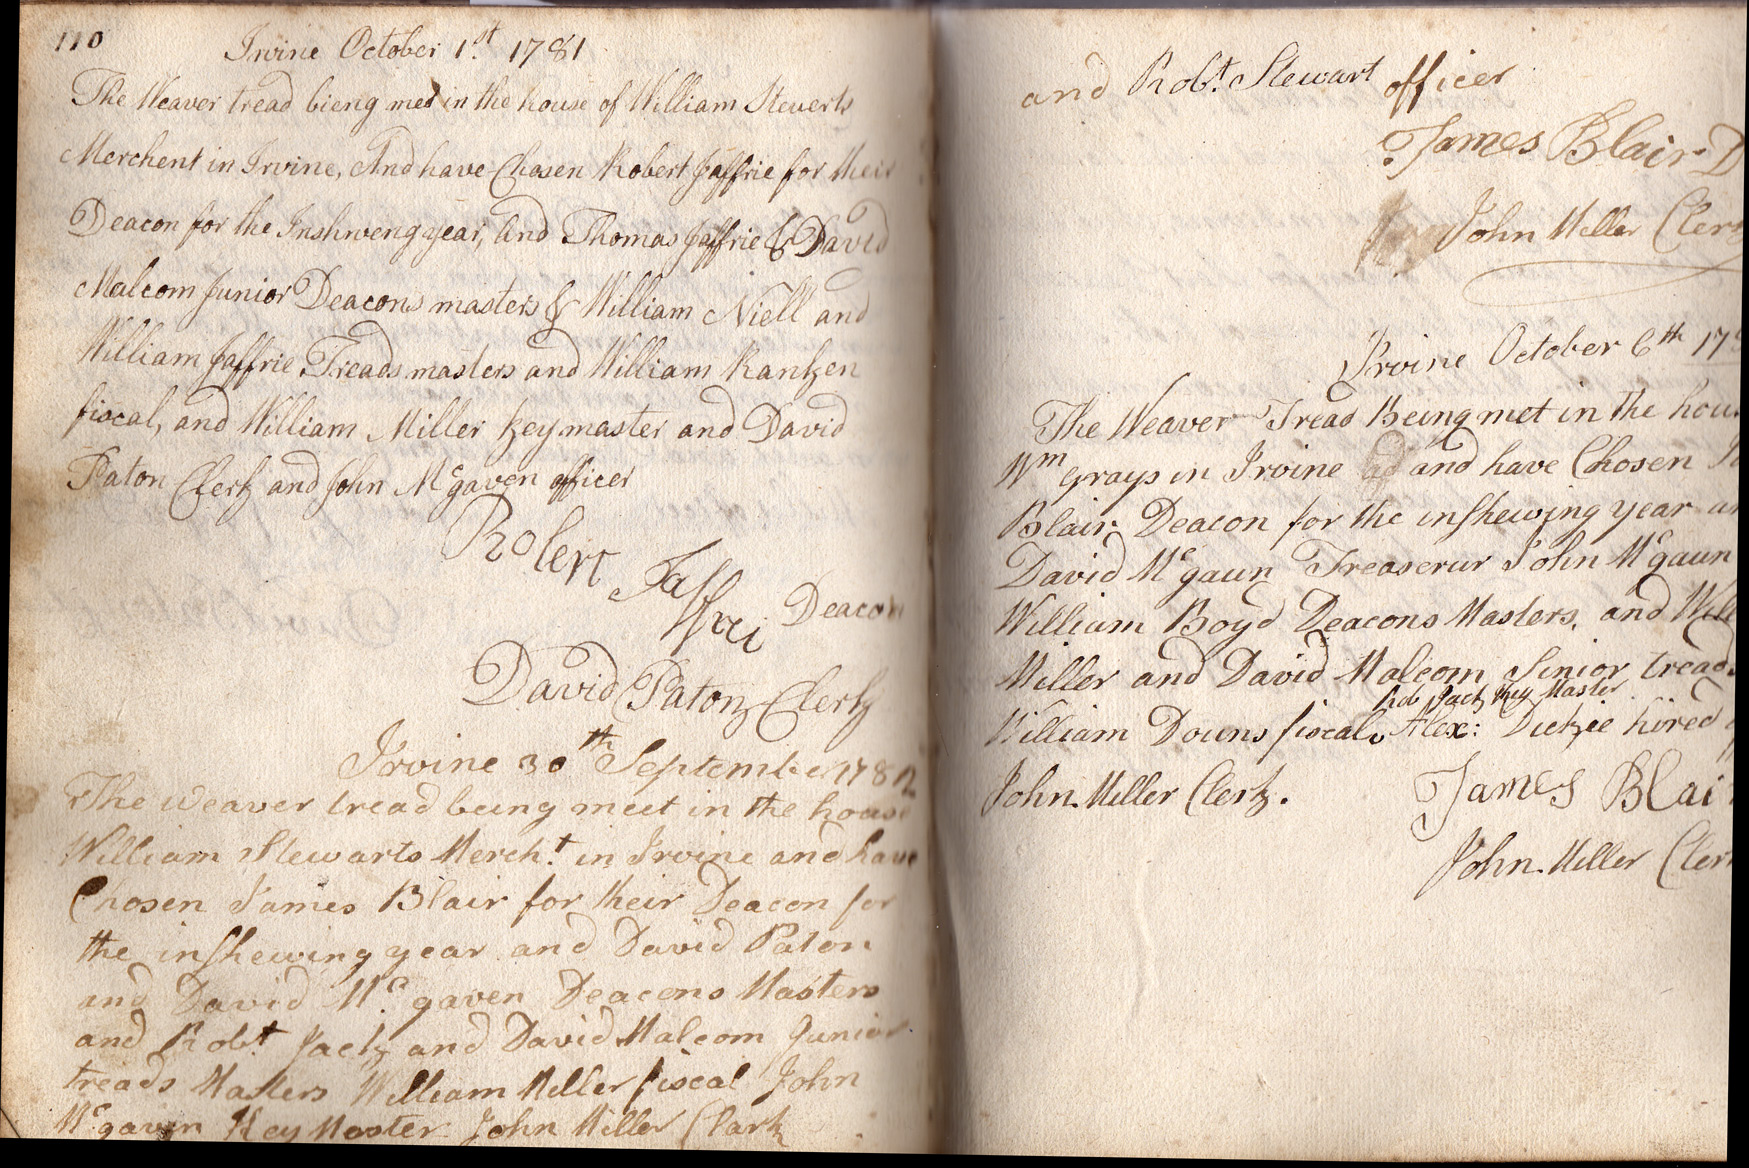 110
Irvine October 1st 1781
The Weaver tread bieng met in the house of William Stewerts
Merchent in Irvine, And have Chosen Robert Jaffrie for their
Deacon for the Inshweng year, and Thomas Jaffrie & David
Malcom Junior Deacons masters & William Niell and
William Jaffrie Treads masters and William Ranken
fiscal, and William Miller keymaster and David
Paton Clerk and John Mcgaven officer
Robert Jaffrei Deacon
David Paton Clerk
Irvine 30th September 1782
The Weaver tread being meet in the house
William Stewarts Mercht in Irvine and have
Chosen James Blair for their Deacon for
the inshewing year and David Paton
and David Mcgaven Deacons Masters
and Robt Jack and David Malcom Junior
treads Masters William Miller fiscal John
Mcgaven Key Master John Miller Clark
and Robt Stewart officer
James Blair D
John Miller Clerk
Irvine October 6th 17
The Weaver Tread Being met in the hou
Wm Grays in Irvine and have Chosen
Blair Deacon for the inshewing year an
David Mcgaun Treaserur John Mcgaun
William Boyd Deacons Masters, and Will
Miller and David Malcom Sinior tread
Rob Jack Key Master
William Douns fiscal Alex: Dickie hired
John Miller Clerk.
James Blair
John Miller Cler